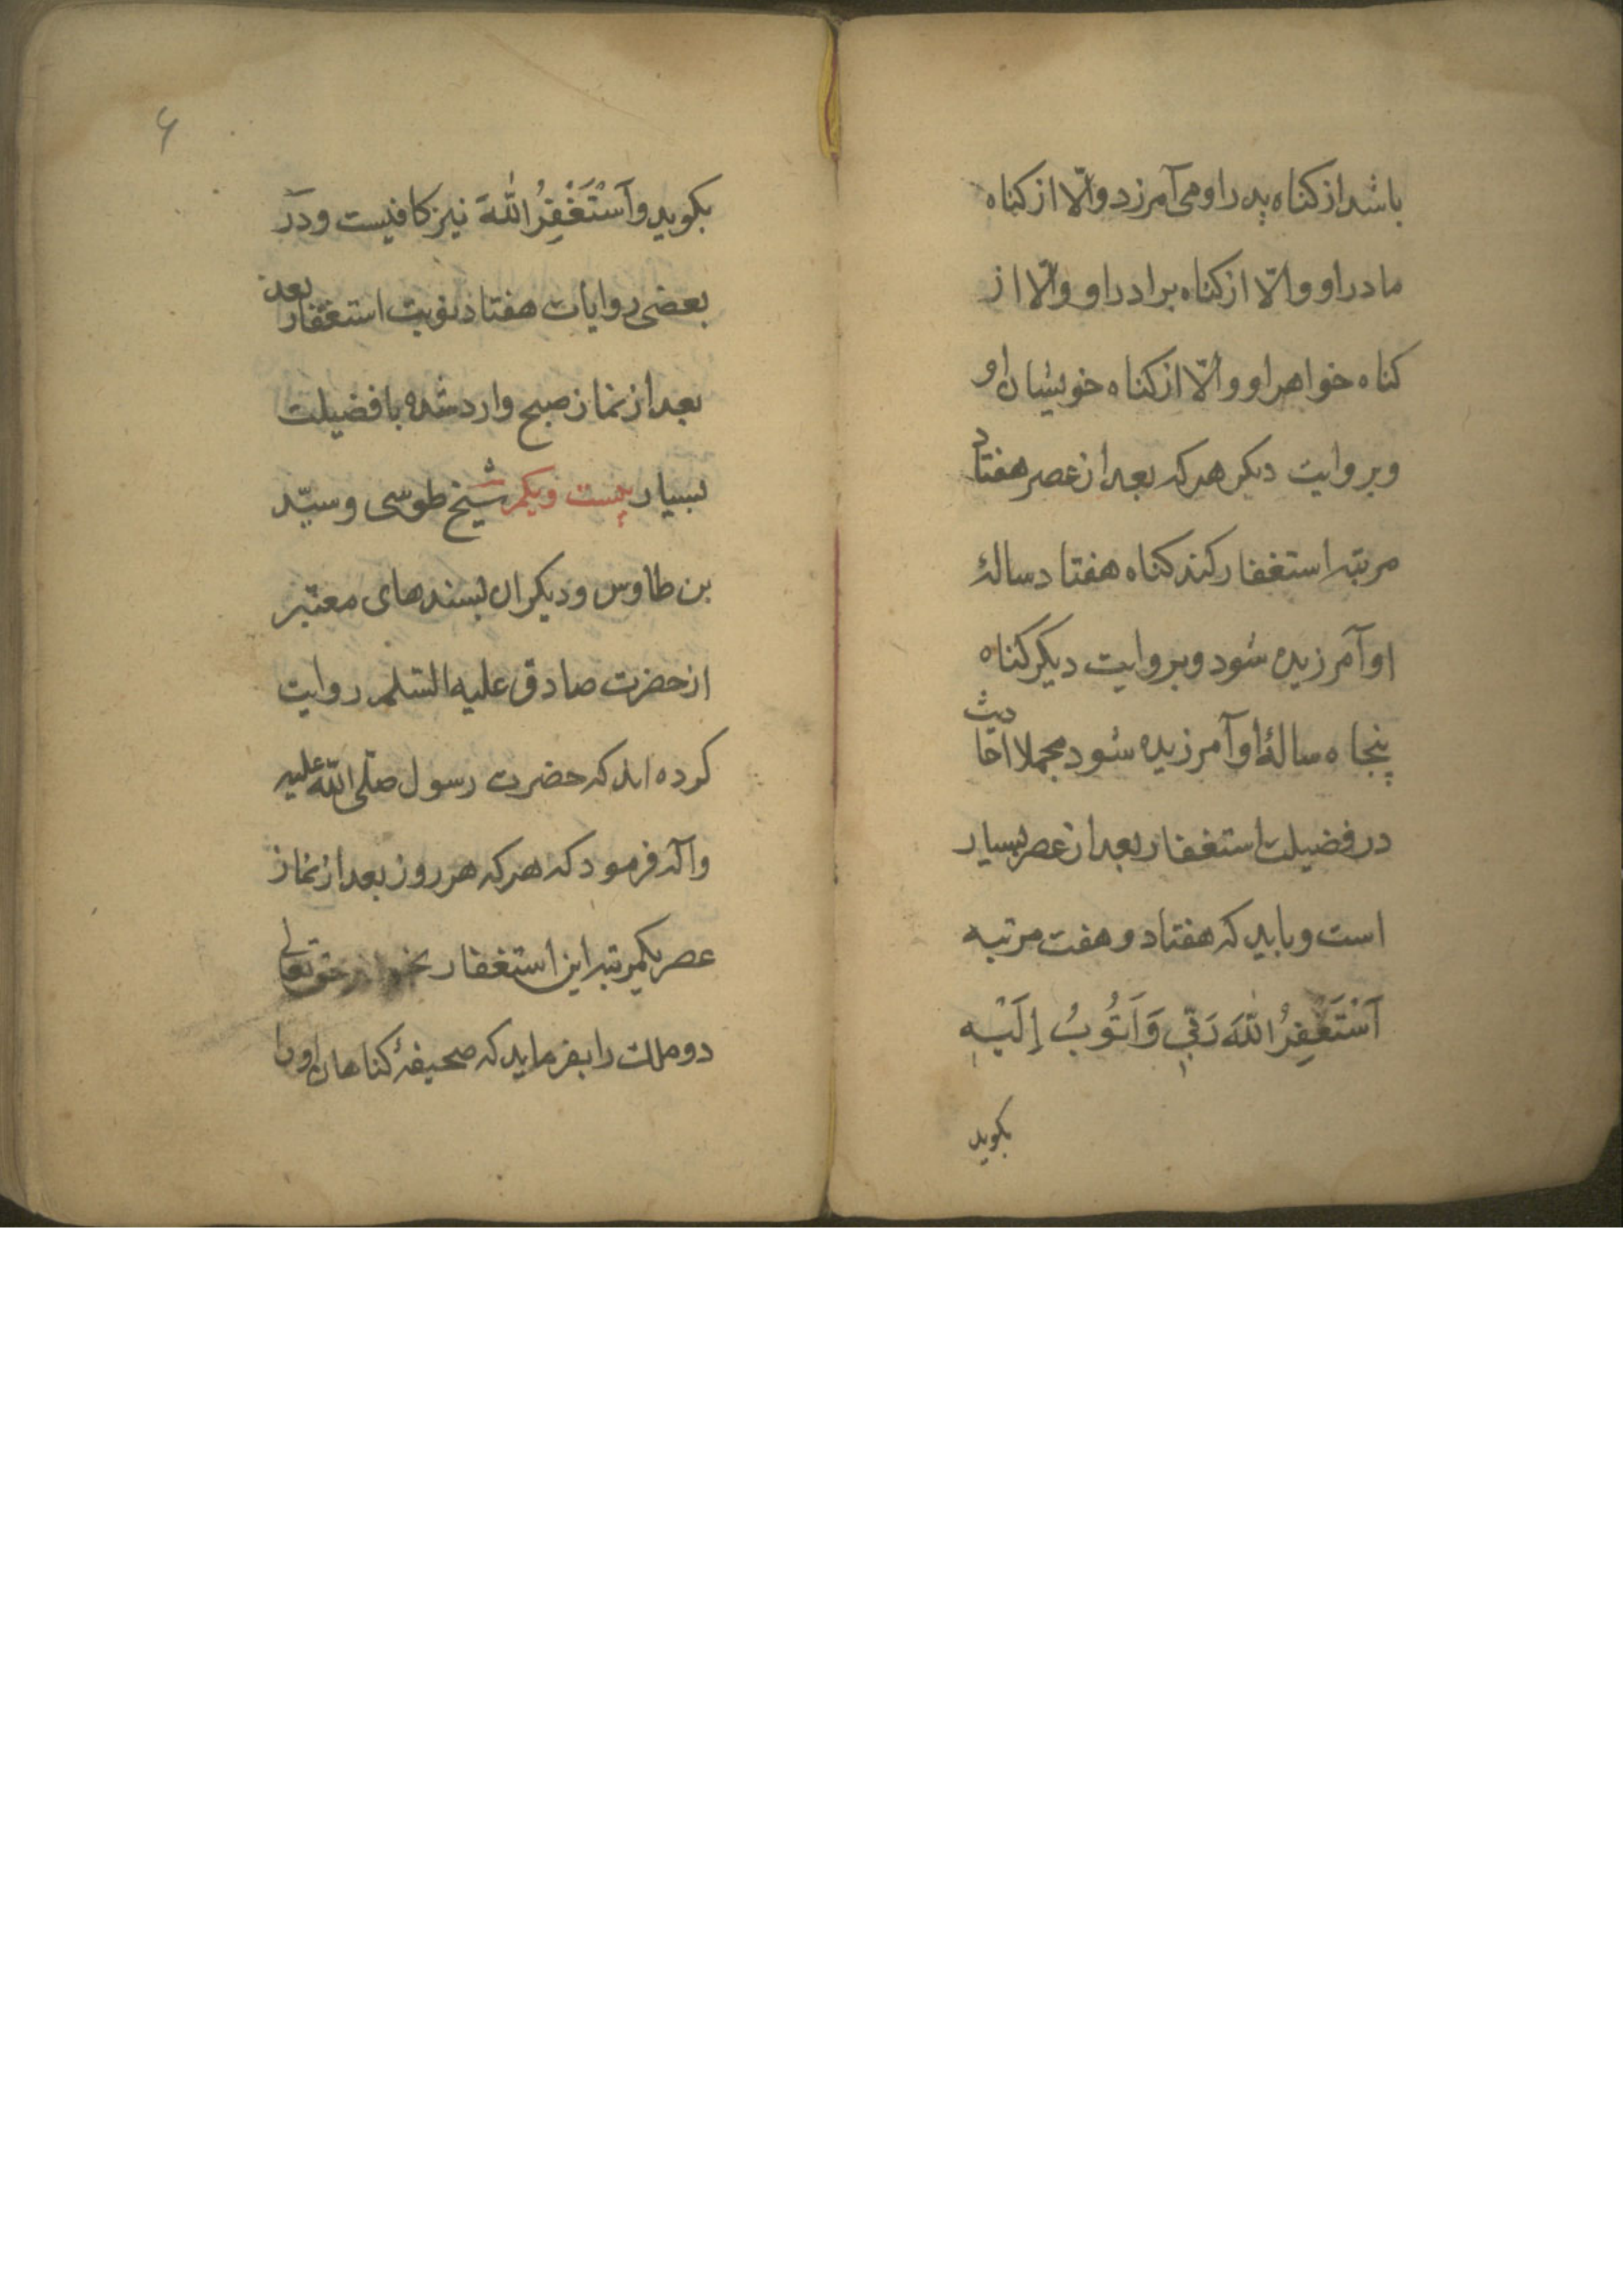 باشد از کناه پدر او می آمرزد والّا از کناه
مادر او والّا از کناه برادر او والّا از
کناه خواهر او والّا از کناه خویشان او
وبروایت دیکر هرکه بعد از عصر هفتاد
مرتبه استغفار کند کناه هفتاد سالهٔ
او آمرزیده شود وبروایت دیکر کناه
پنجاه سالهٔ او آمرزیده شود مجملا احادیث
در فضیلت استغفار بعد از عصر بسیار
است وباید که هفتاد و هفت مرتبه
اَسْتَغْفِرُ اللّٰهَ رَبّي وَاَتُوبُ اِلَيْهِ
بکوید
۶
بکوید واَسْتَغْفِرُ اللّٰهَ نیز کافیست ودر
بعضی روایات هفتاد نوبت استغفار بعد
بعد از نماز صبح وارد شده با فضیلت
بسیار بیست ویکم شیخ طوسی وسیّد
بن طاوس ودیکران بسندهای معتبر
از حضرت صادق علیه السّلم روایت
کرده اند که حضرت رسول صلّی اللّه علیه
وآله فرمود که هرکه هر روز بعد از نماز
عصر یکمرتبه این استغفار بخواند حقتعالی
دو ملک را بفرماید که صحیفهٔ کناهان او را